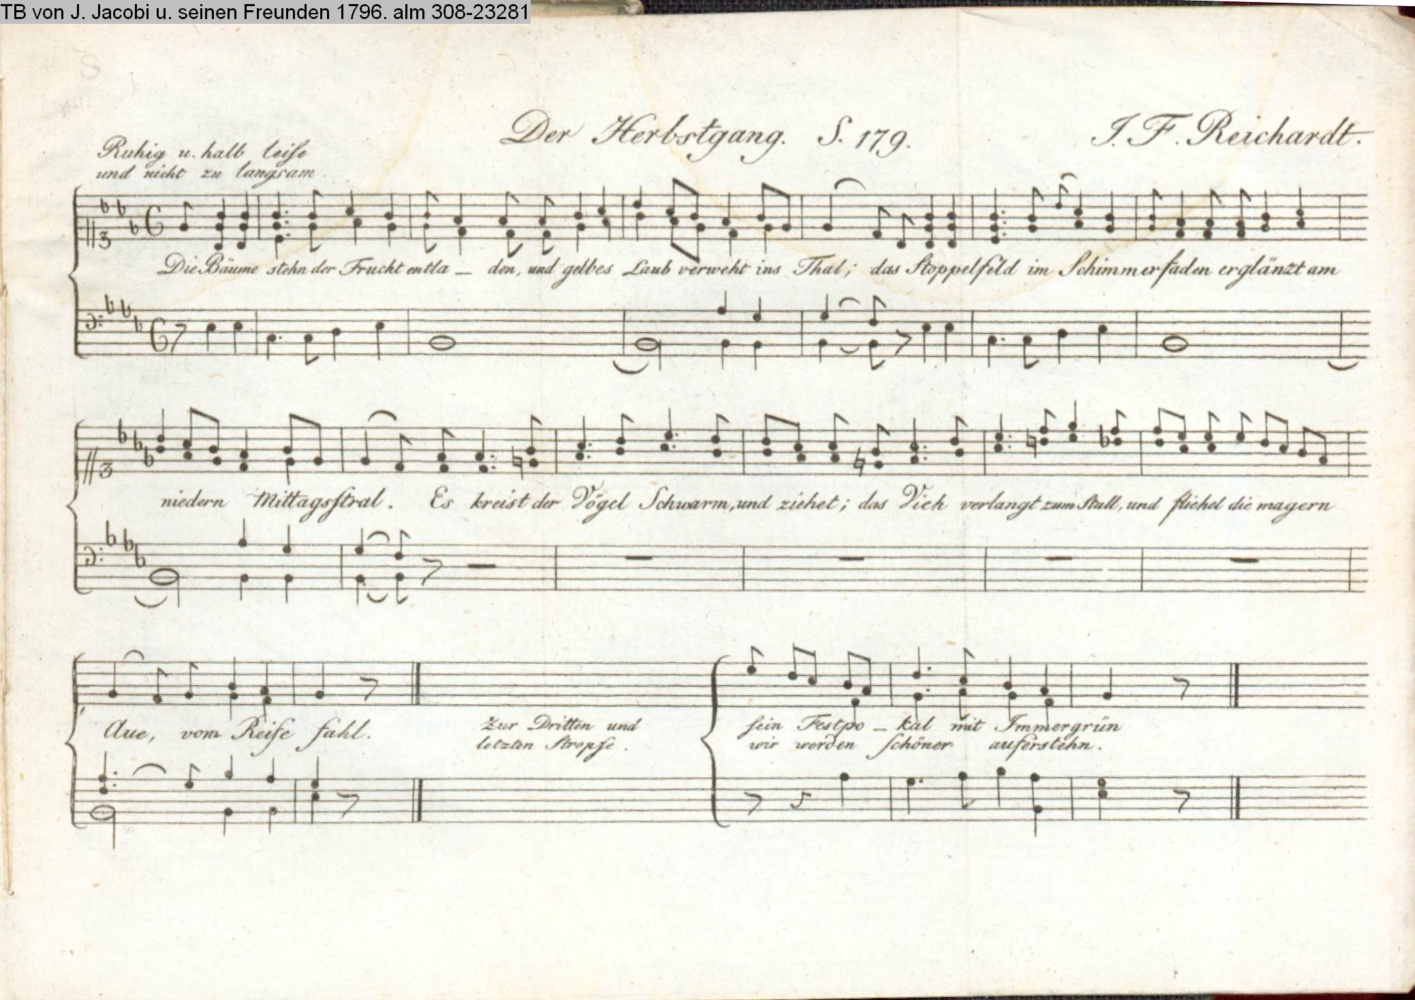 TB von J. Jacobi u. seinen Freunden 1796. alm 308-23281
Der Herbstgang. S. 179.
J. F. Reichardt.
Ruhig u. halb leise
und nicht zu langsam
Die Bäume stehn der Frucht entla_den, und gelbes Laub verweht ins Thal; das Stoppelfeld im Schimmerfaden erglänzt am
niedern Mittagsstral. Es kreist der Vögel Schwarm, und ziehet; das Vieh verlangt zum Stall, und fliehet die magern
Aue, vom Reife fahl.
Zur Dritten und
letzten Strophe.
sein Festpo_kal mit Immergrün
wir werden schöner auferstehn.